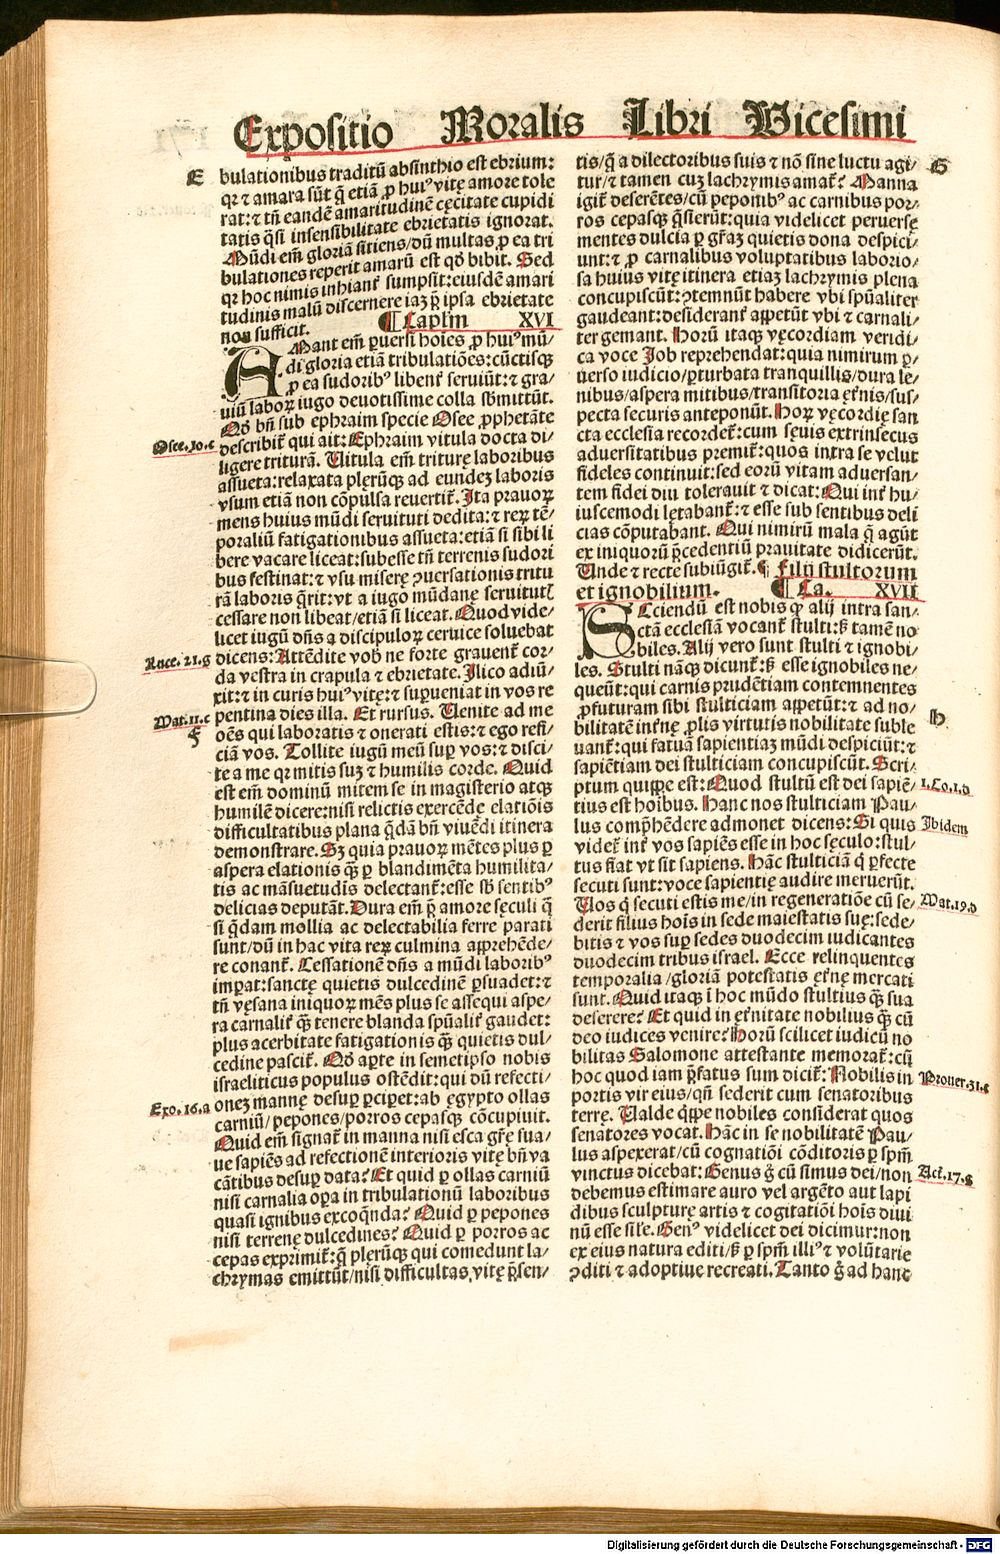 Expositio Moralis Libri Vicesimi
E
bulationibus traditū absinthio est ebrium:
qꝛ ⁊ amara sūt q̄ etiā ꝓ huiꝰ vitę amore tole
rat: ⁊ tn̄ eandē amaritudinē cęcitate cupidi
tatis q̄si insensibilitate ebrietatis ignorat.
Mūdi em̄ gloriā sitiens/dū multas ꝓ ea tri
bulationes reperit amarū est qd̓ bibit. Sed
qꝛ hoc nimis inhiant̄ sumpsit: eiusdē amari
tudinis malū discernere iaꝫ p̄ ipsa ebrietate
non sufficit.
¶ Caplm XVI
AMant em̄ ꝑuersi hoies ꝓ huiꝰ mū/
di gloria etiā tribulatiōes: cūctisqꝫ
ꝓ ea sudoribꝰ libent̄ seruiūt: ⁊ gra/
uiū laboꝝ iugo deuotissime colla sb̓mittūt.
Qd̓ bn̄ sub ephraim specie Osee ꝓphetāte
describit̄ qui ait: Ephraim vitula docta di/
ligere trituram. Vitula em̄ triturę laboribus
assueta: relaxata plęrūqꝫ ad eundeꝫ laboris
vsum etiā non cōpulsa reuertit̄. Ita prauoꝝ
mens huius mūdi seruituti dedita: ⁊ reꝝ tē/
poraliū fatigationibus assueta: etiā si sibi li
bere vacare liceat: subesse tn̄ terrenis sudori
bus festinat: ⁊ vsu miserę ꝯuersationis tritu
rā laboris q̄rit: vt a iugo mūdanę seruitutꝭ
cessare non libeat/etiā si liceat. Quod vide/
licet iugū dn̄s a discipuloꝝ ceruice soluebat
dicens: Attēdite vob̓ ne forte grauent̄ cor/
da vestra in crapula ⁊ ebrietate. Ilico adiū/
xit: ⁊ in curis huiꝰ vitę: ⁊ suꝑueniat in vos re
pentina dies illa. Et rursus. Uenite ad me
oēs qui laboratis ⁊ onerati estis: ⁊ ego refi/
ciā vos. Tollite iugū meū suꝑ vos: ⁊ disci/
te a me qꝛ mitis suꝫ ⁊ humilis corde. Quid
est em̄ dominū mitem se in magisterio atqꝫ
humilē dicere: nisi relictis exercēdę elatiōis
difficultatibus plana q̄dā bn̄ viuēdi itinera
demonstrare. Sꝫ quia prauoꝝ mētes plus ꝑ
aspera elationis qꝫ̄ ꝑ blandimēta humilita/
tis ac māsuetudīs delectant̄: esse sb̓ sentibꝰ
delicias deputāt. Dura em̄ p̄ amore sęculi q̄
si q̄dam mollia ac delectabilia ferre parati
sunt/dū in hac vita reꝝ culmina apprehēde/
re conant̄. Cessationē dn̄s a mūdi laboribꝰ
imꝑat: sanctę quietis dulcedinē ꝑsuadet: ⁊
tn̄ vęsana iniquoꝝ mēs plus se assequi aspe/
ra carnalit̄ qꝫ̄ tenere blanda spūalit̄ gaudet:
plus acerbitate fatigationis qꝫ̄ quietis dul/
cedine pascit̄. Qd̓ aꝑte in semetipso nobis
israeliticus populus ostēdit: qui dū refecti/
oneꝫ mannę desuꝑ ꝑciꝑet: ab ęgypto ollas
carniū/pepones/porros cepasqꝫ cōcupiuit.
Quid em̄ signat̄ in manna nisi esca gr̄ę sua/
ue sapiēs ad refectionē interioris vitę bn̄ va
cātibus desuꝑ data? Et quid ꝑ ollas carniū
nisi carnalia oꝑa in tribulationū laboribus
quasi ignibus excoq̄nda? Quid ꝑ pepones
nisi terrenę dulcedines? Quid ꝑ porros ac
cepas exprimit̄: q̄ plęrūqꝫ qui comedunt la/
chrymas emittūt/nisi difficultas vitę p̄sen/
Osee.10.c
Luce.21.g
Mat.11.c
F
Exo.16.a
tis/q̄ a dilectoribus suis ⁊ nō sine luctu agi/
tur/⁊ tamen cuꝫ lachrymis amat̄? Manna
igit̄ deserētes/cū peponibꝰ ac carnibus por/
ros cepasqꝫ q̄sierūt: quia videlicet peruersę
mentes dulcia ꝑ gr̄aꝫ quietis dona despici/
unt: ⁊ ꝓ carnalibus voluptatibus laborio/
sa huius vitę itinera etiaꝫ lachrymis plena
concupiscūt: ꝯtemnūt habere vbi spūaliter
gaudeant: desiderant̄ appetūt vbi ⁊ carnali/
ter gemant. Horū itaqꝫ vęcordiam veridi/
ca voce Job reprehendat: quia nimirum ꝑ/
uerso iudicio/ꝑturbata tranquillis/dura le/
nibus/aspera mitibus/transitoria ęt̄nis/sus/
pecta securis anteponūt. Hoꝝ vęcordię san
cta ecclesia recordet̄: cum sęuis extrinsecus
aduersitatibus premit̄: quos intra se velut
fideles continuit: sed eorū vitam aduersan/
tem fidei diu tolerauit ⁊ dicat: Qui int̄ hu/
iuscemodi lętabant̄: ⁊ esse sub sentibus deli
cias cōputabant. Qui nimirū mala q̄ agūt
ex iniquorū p̄cedentiū prauitate didicerūt.
Unde ⁊ recte subiūgit̄. ¶ Filij stultorum
et ignobilium. ¶ Ca. XVII
SCciendū est nobis qꝙ alij intra san/
ctā ecclesiā vocant̄ stulti: sꝫ tamē no
biles. Alij vero sunt stulti ⁊ ignobi/
les. Stulti nāqꝫ dicunt̄: sꝫ esse ignobiles ne/
queūt: qui carnis prudētiam contemnentes
ꝓfuturam sibi stulticiam appetūt: ⁊ ad no/
bilitatē int̄nę ꝓlis virtutis nobilitate suble
uant̄: qui fatuā sapientiaꝫ mūdi despiciūt: ⁊
sapiētiam dei stulticiam concupiscūt. Scri/
ptum quippe est: Quod stultū est dei sapiē/
tius est hoibus. Hanc nos stulticiam Pau/
lus comp̄hēdere admonet dicens: Si quis
videt̄ int̄ vos sapiēs esse in hoc sęculo: stul/
tus fiat vt sit sapiens. Hāc stulticiā q̄ ꝑfecte
secuti sunt: voce sapientię audire meruerūt.
Uos q̄ secuti estis me/in regeneratiōe cū se/
derit filius hoīs in sede maiestatis suę: sede/
bitis ⁊ vos suꝑ sedes duodecim iudicantes
duodecim tribus israel. Ecce relinquentes
temporalia/gloriā potestatis ęt̄nę mercati
sunt. Quid itaqꝫ ī hoc mūdo stultius qꝫ̄ sua
deserere? Et quid in ęt̄nitate nobilius qꝫ̄ cū
deo iudices venire? Horū scilicet iudicū no
bilitas Salomone attestante memorat̄: cū
hoc quod iam p̄fatus sum dicit̄: Nobilis in
portis vir eius/qn̄ sederit cum senatoribus
terrę. Ualde q̄ppe nobiles considerat quos
senatores vocat. Hāc in se nobilitatē Pau/
lus aspexerat/cū cognatiōi cōditoris ꝑ spm̄
vinctus dicebat: Genus g̊ cū simus dei/non
debemus estimare auro vel argēto aut lapi
dibus sculpturę artis ⁊ cogitatiōi hoīs diui
nū esse sile. Genꝰ videlicet dei dicimur: non
ex eius natura editi/sꝫ ꝑ spm̄ illiꝰ ⁊ volūtarie
ꝯditi ⁊ adoptiue recreati. Tanto g̊ ad hanc
G
H
1.Co.1.d
Ibidem
Mat.19.d
Prouer.31.c
Act.17.g
Digitalisierung gefördert durch die Deutsche Forschungsgemeinschaft - DFG